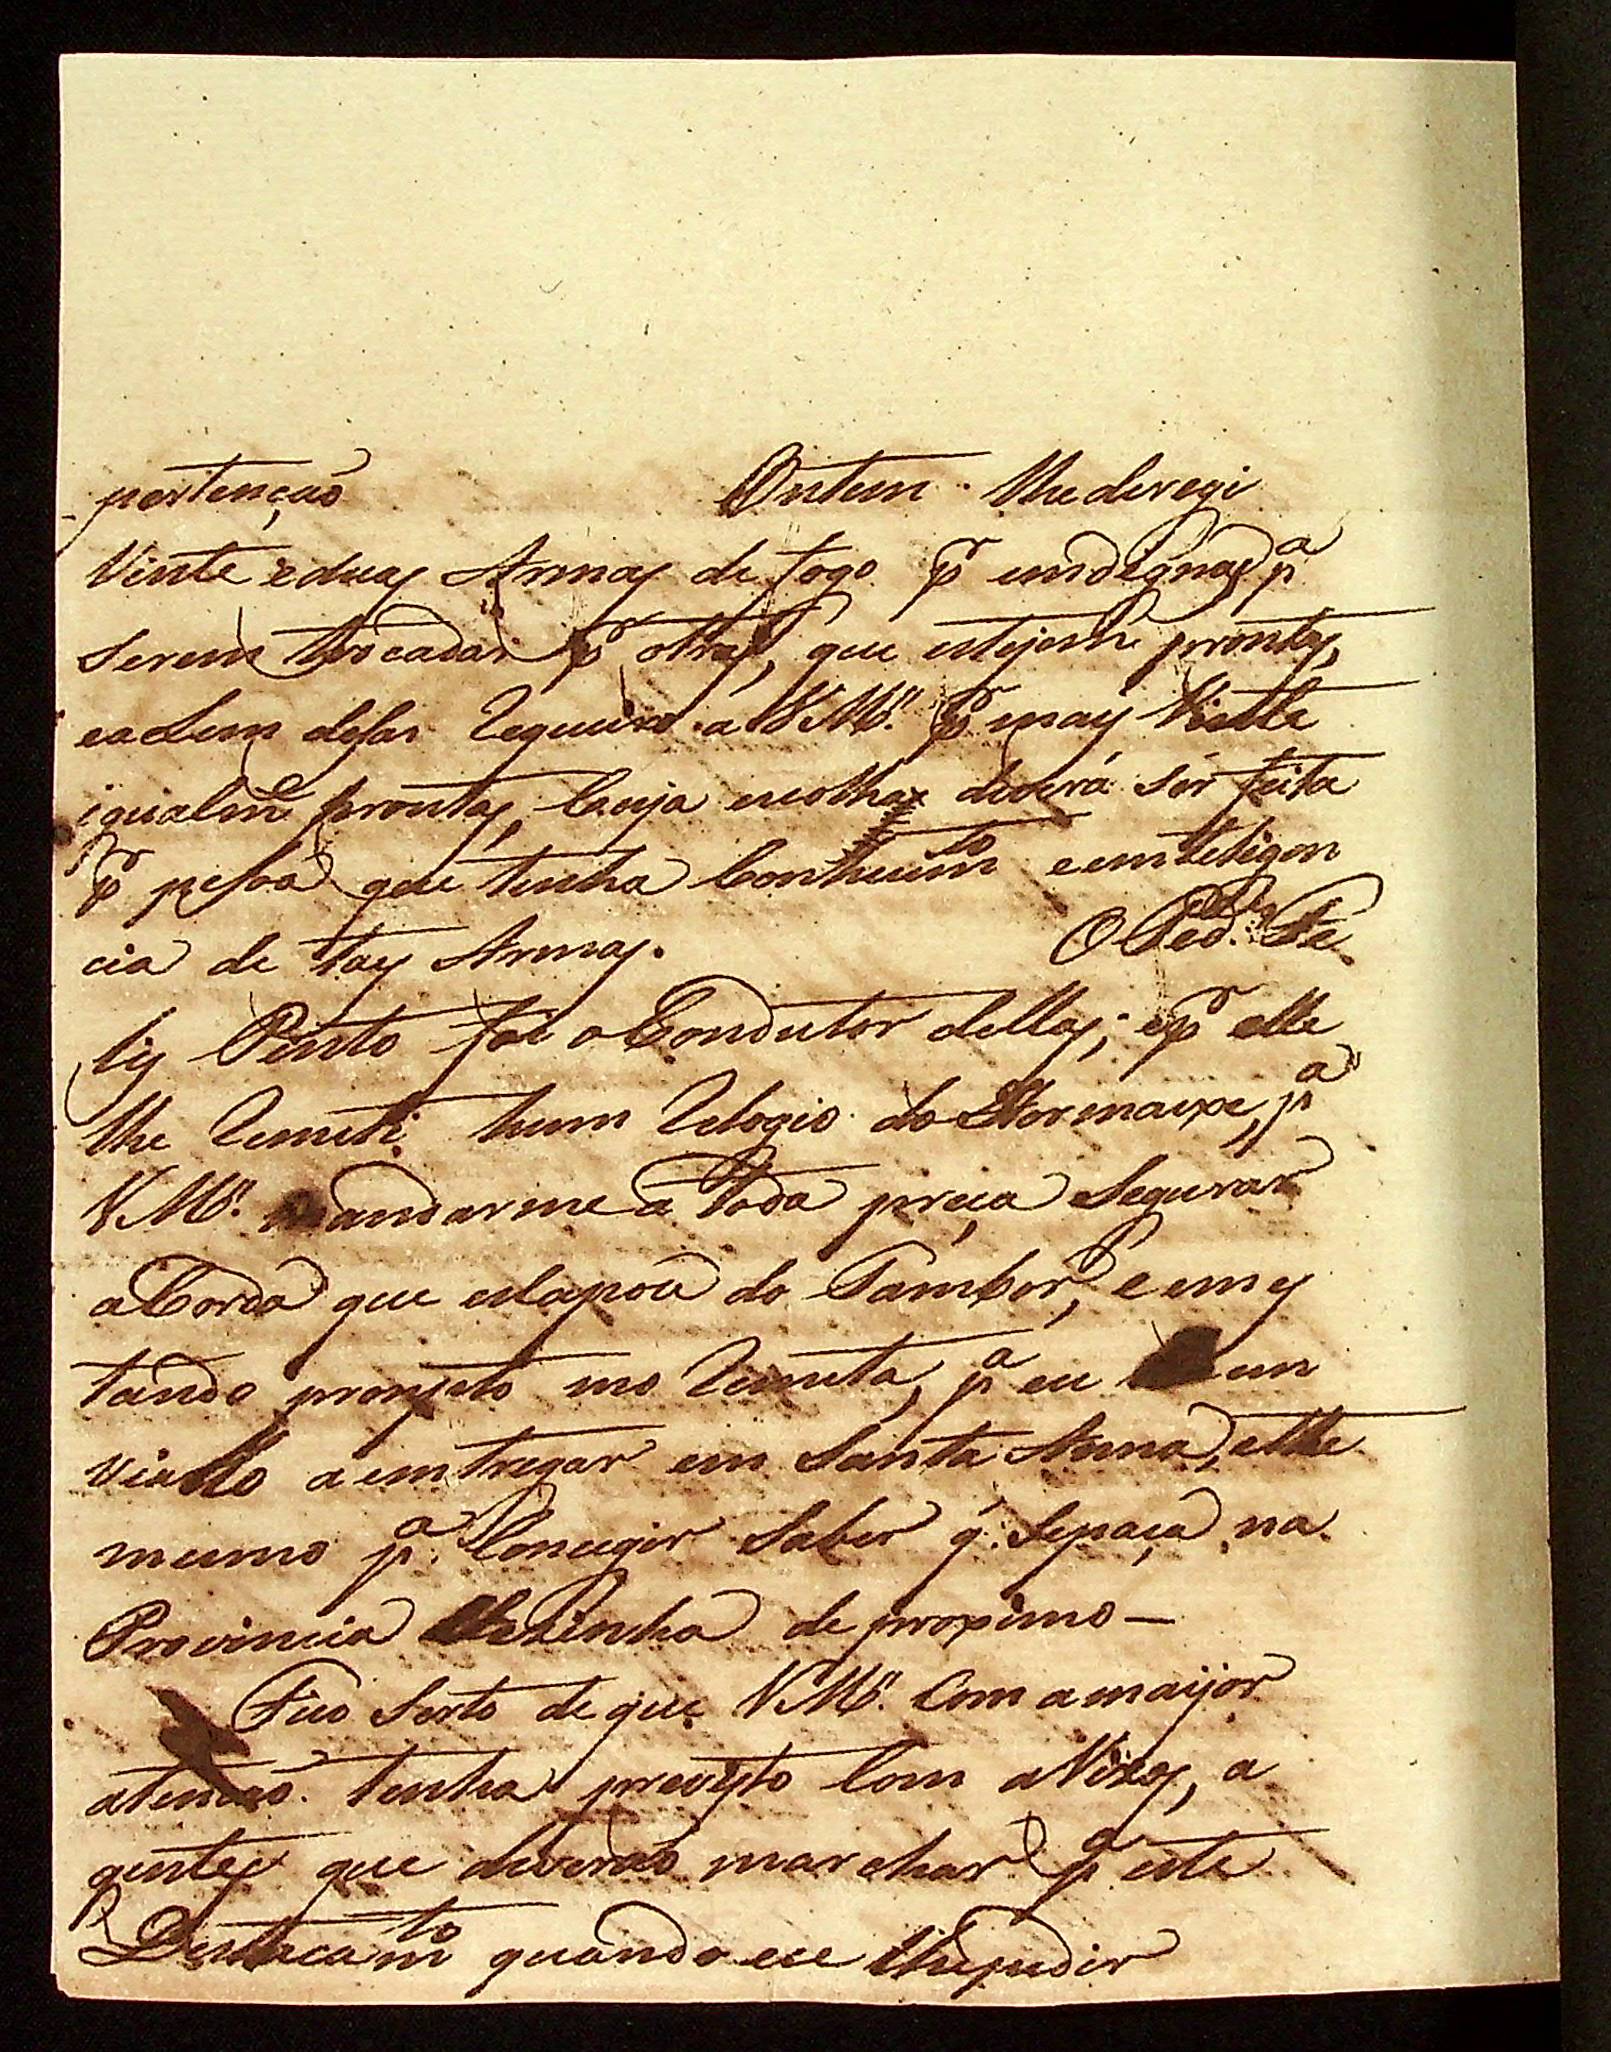 pertenção Ontem lhe deregi
Vinte e duas Armas de fogo pr. endignas pa
serem trocadas pr outras, que estejem prontas,
e alem desas Requeiro a VMce. pr mais Vinte
igualme prontas, Cuja escolha deverá sér feita
pr pesoa que tenha Conhecimto e emteligen
cia de tais Armas. O Fe
lis Pinto foi o Condutor dellas; e pr elle
lhe Remeti hum Relogio do pa
VMce. mandarme a toda preça Segurar
a Corda que escapou do Tambor, e em es
tando prompto mo Remeta, pa eu en
viallo a emtregar em Santa Anna, e lhe
mesmo pa. Conseguir Saber q. Sepaça na
Provincia Vezinha de proximo —
Fico Serto de que VMce. Com a maijor
atencão tenha previsto Com a Vizos, a
gentes que deverão marchar pa este
Destacamto quando eu lhe pedir